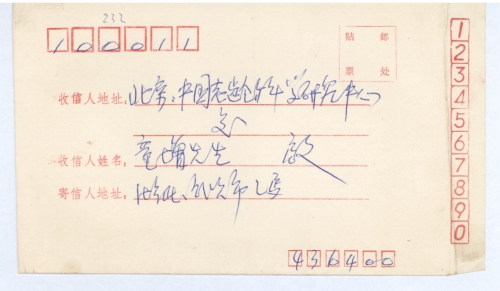 232
100011
贴 邮
票 处
收信人地址:北京、中国老龄科学研究中心
收信人姓名:童增先生 启
寄信人地址:湖北、
436400
1
2
3
4
5
6
7
8
9
0